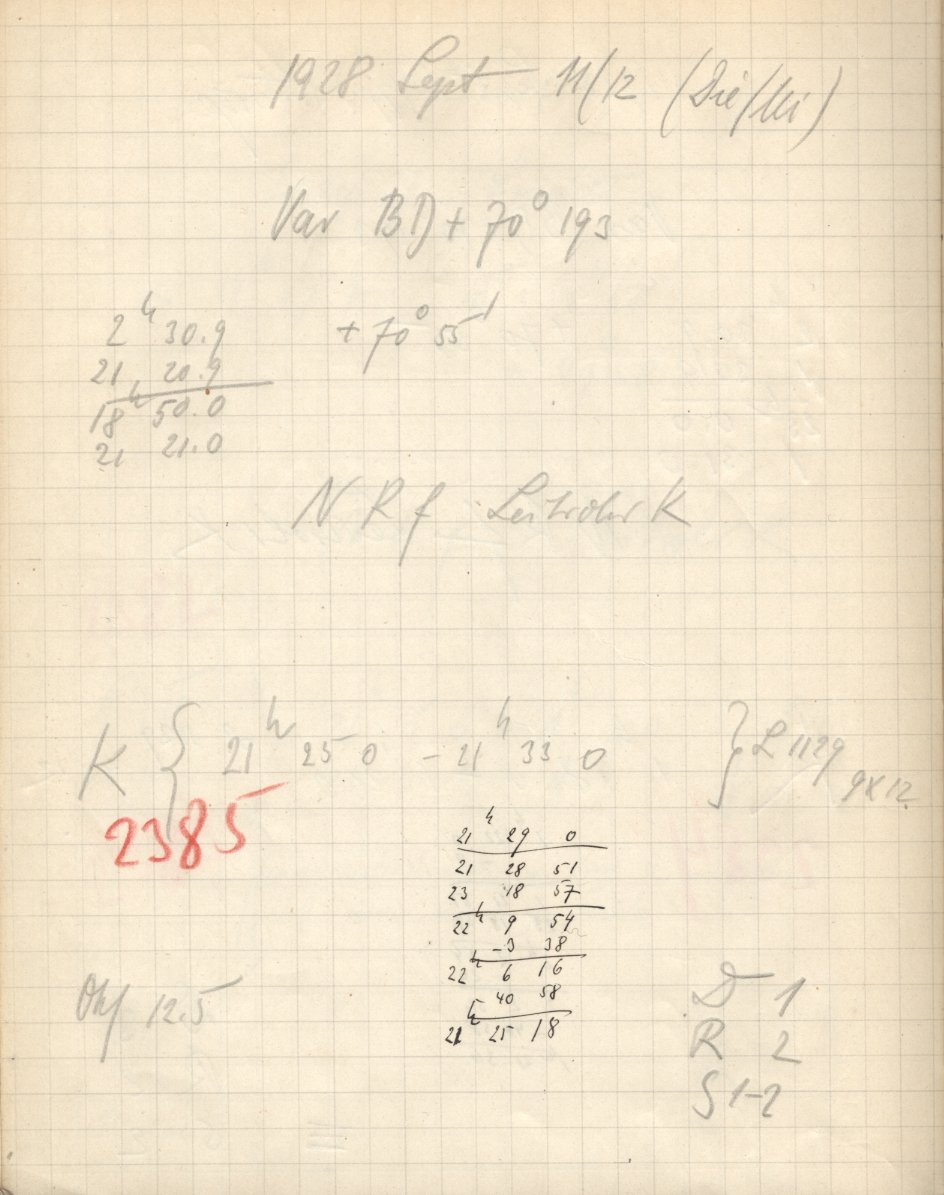 1928 Sept 11/12 (Die/Mi)
Var BD + 70° 193
2ʰ 30.9 + 70° 55'
21 20.9
18ʰ 50.0
21 21.0
N R f Leitrohr K
K { 21ʰ 25 0 - 21ʰ 33 0 } L 1129
9X12
2385
21ʰ 29 0
21 28 51
23 18 57
22ʰ 9 54
-3 38
22ʰ 6 16
40 58
21ʰ 25 18
Okf 12.5
D 1
R 2
S 1-2